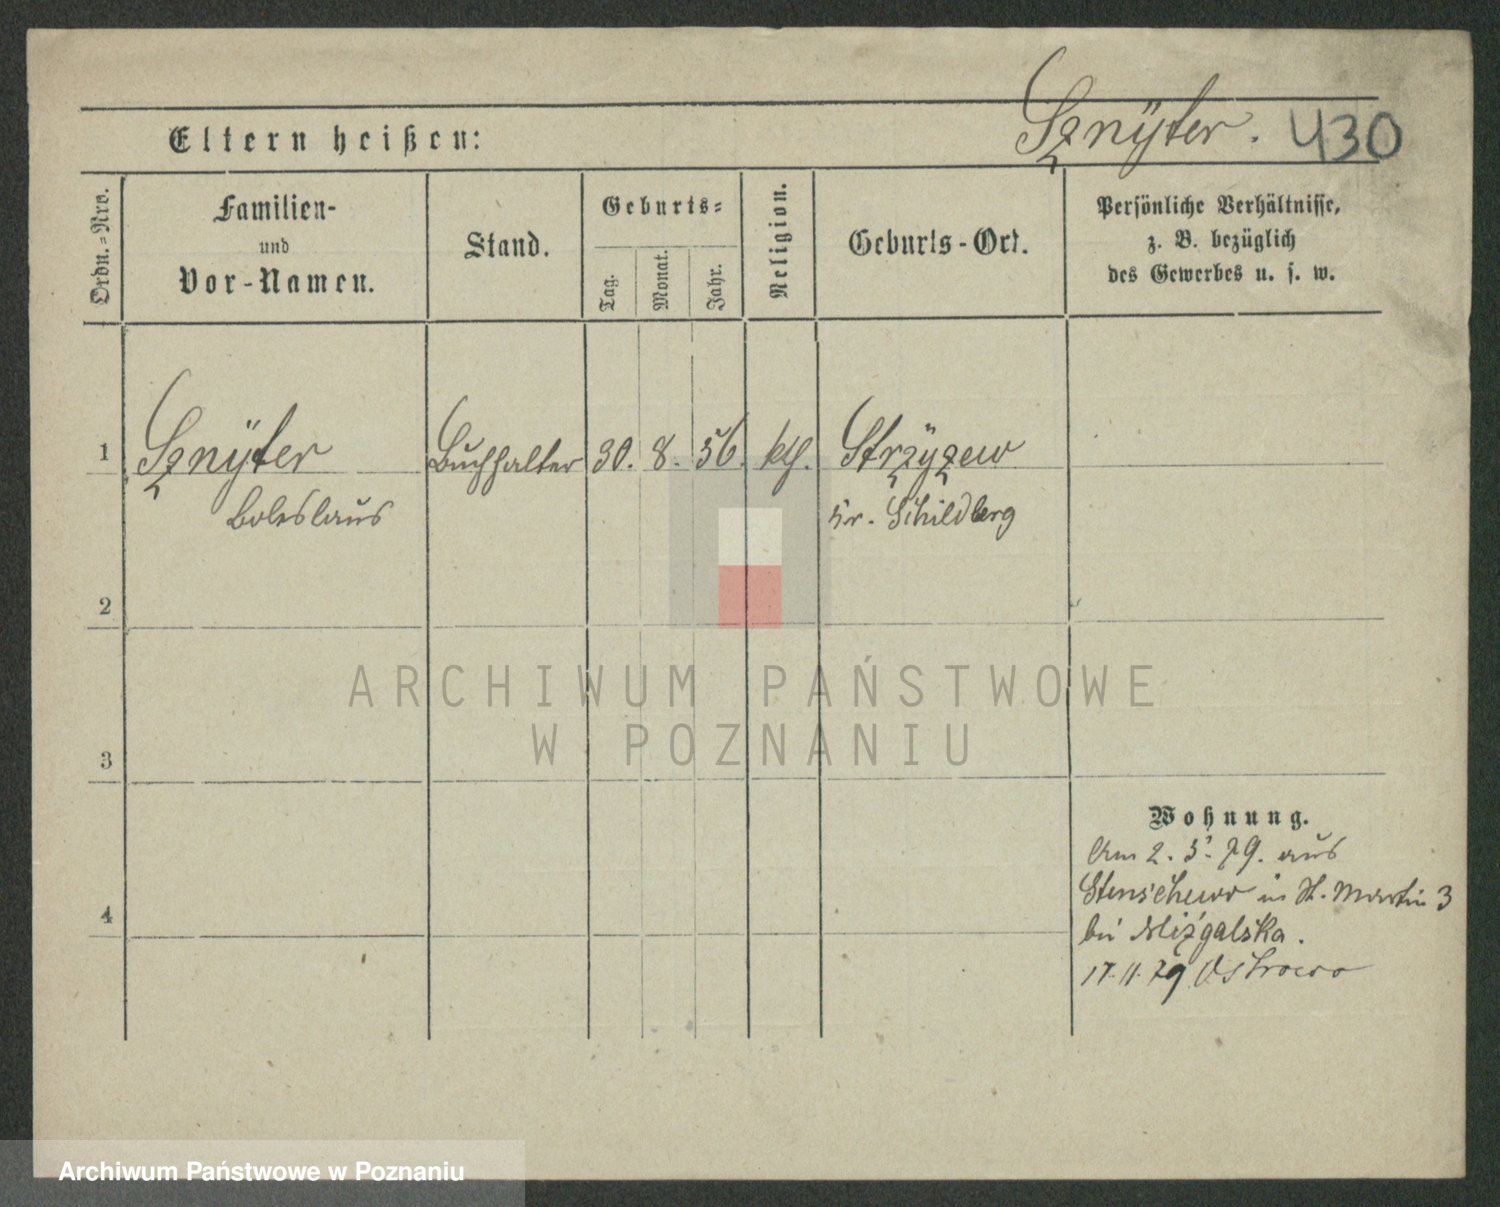 Sznÿter. 430
Eltern heißen:
Ordn.=Nro.
Familien-
und
Vor-Namen.
Stand.
Geburts=
Tag.
Monat.
Jahr.
Religion.
Geburts-Ort.
Persönliche Verhältnisse,
z. B. bezüglich
des Gewerbes u. s. w.
1 Sznÿter Buchhalter 30. 8. 56. kth. Strzÿzew
Boleslaus Kr. Schildberg
2
3
4
Wohnung.
Am 2. 5. 79. aus
Stenschewo in St. Martin 3
bei Mizgalska.
17. 11. 79 Ostrowo
ARCHIWUM PAŃSTWOWE
W POZNANIU
Archiwum Państwowe w Poznaniu